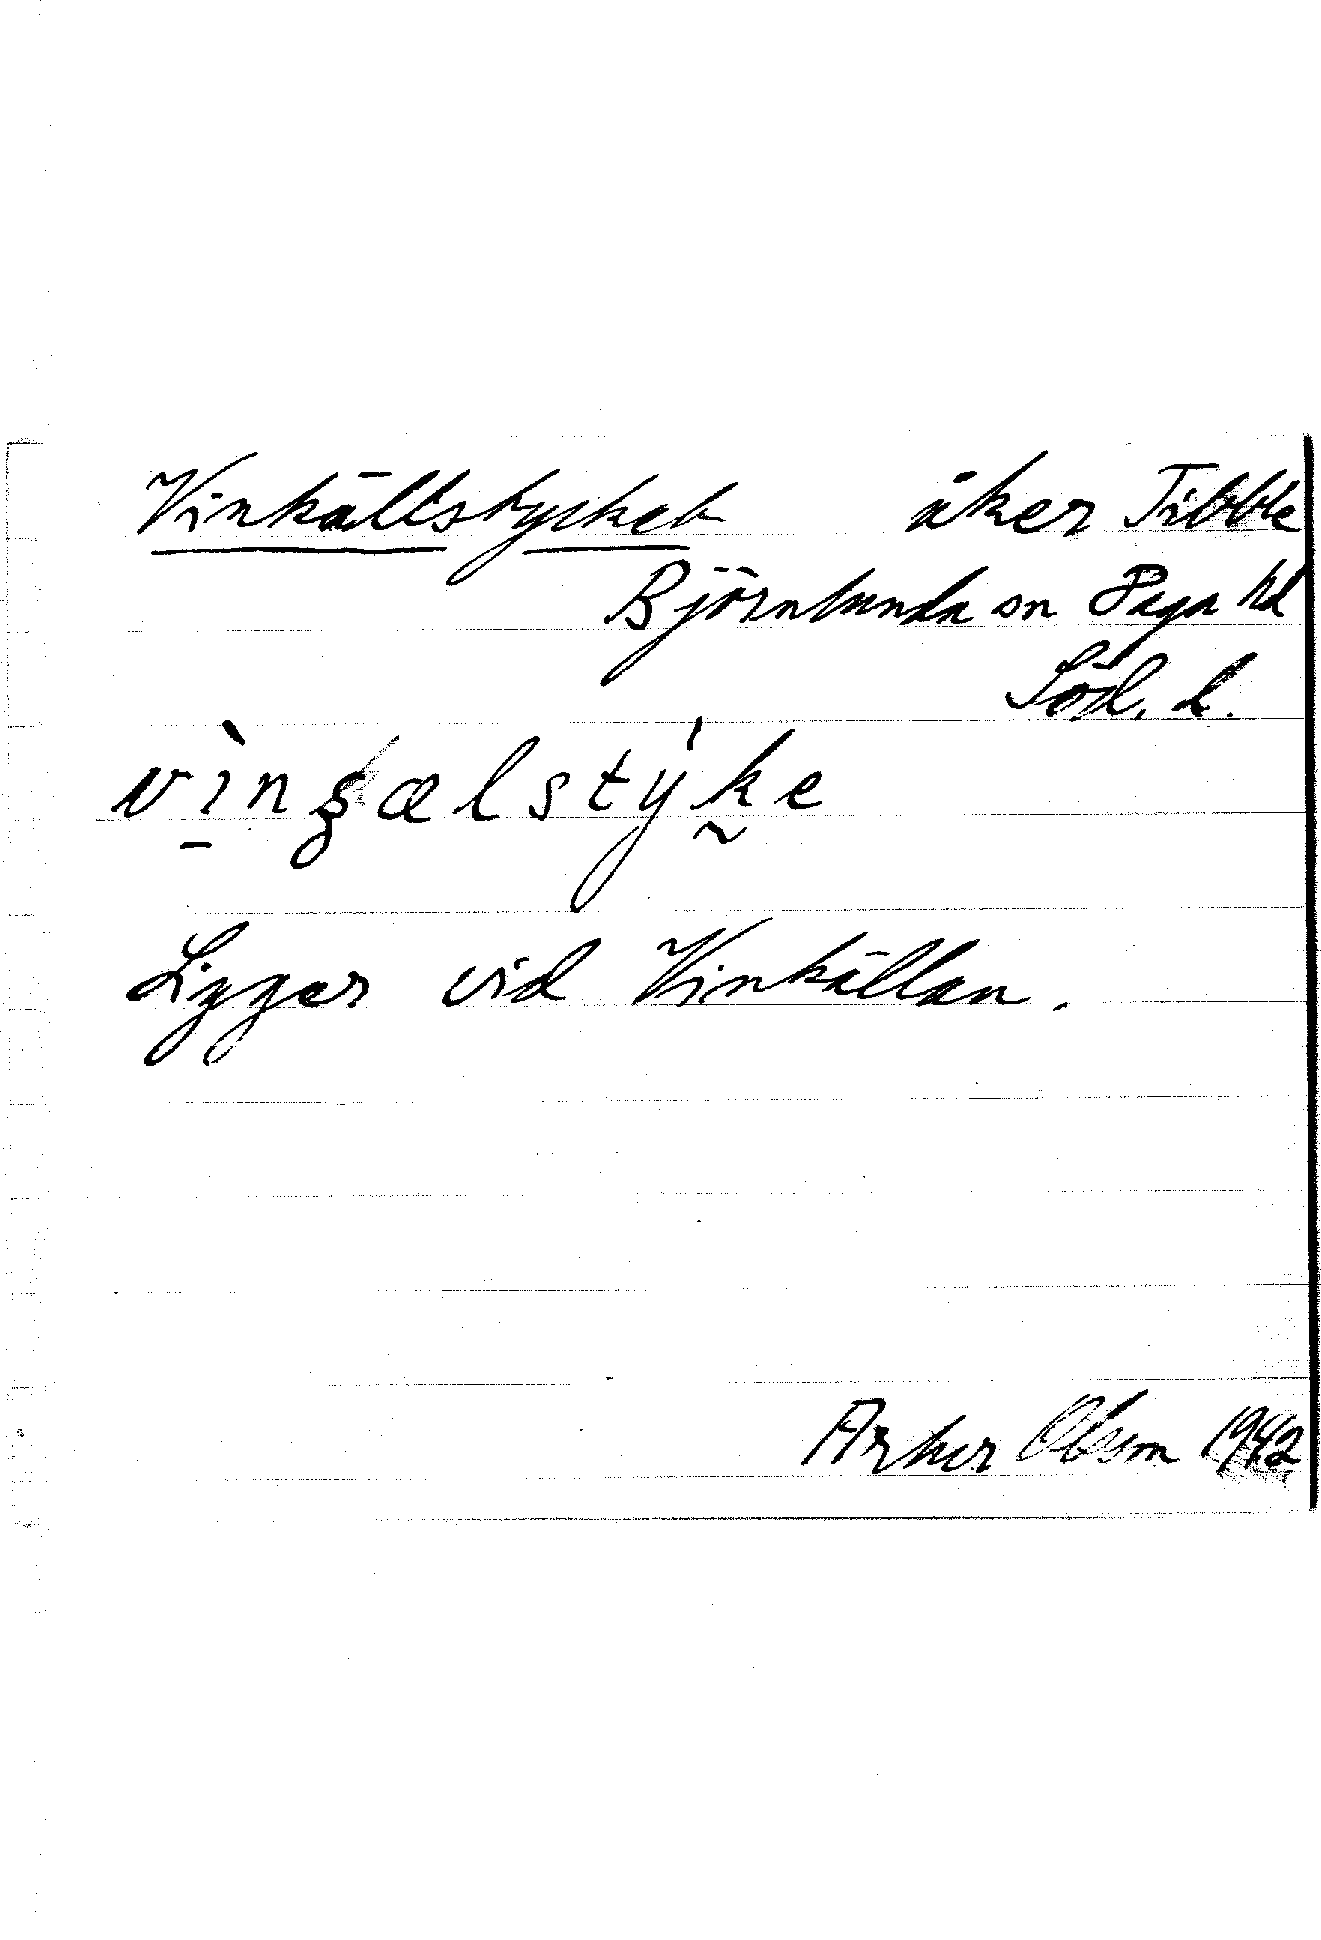 Vinkällstycket åker Tibble
Björnlunda sn Daga hd
Söd. l.
Ligger vid Vinkällan.
Artur Olsson 1942